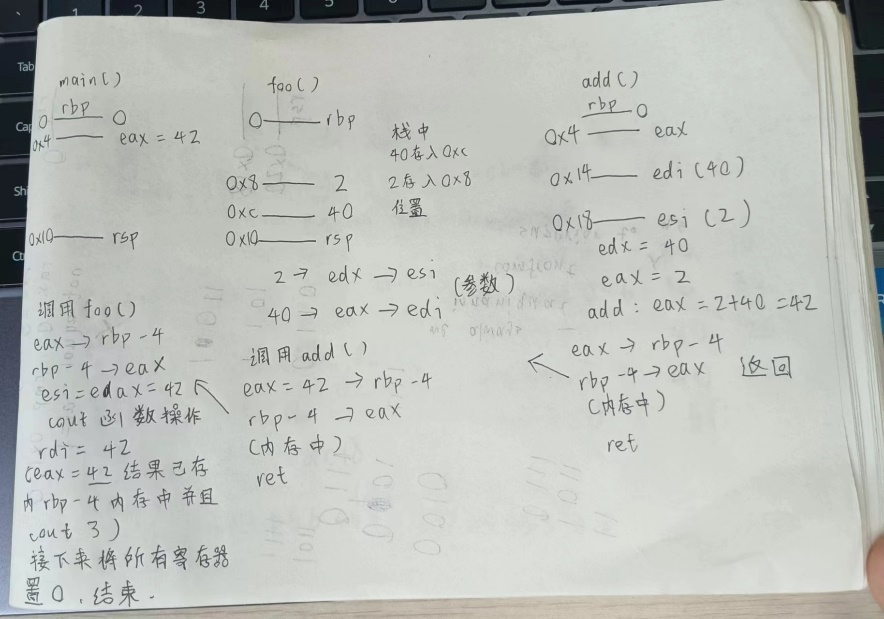 main()
rbp
0 0
0x4 eax = 42
0x10 rsp
调用 foo()
eax → rbp-4
rbp-4 → eax
esi = edax = 42
cout 函数操作
rdi = 42
(eax = 42 结果已存
内 rbp-4 内存中并且
cout 了)
接下来将所有寄存器
置0,结束.
foo()
0 rbp
0x8 2
0xc 40
0x10 rsp
栈中
40存入0xc
2存入0x8
位置
2 → edx → esi
(参数)
40 → eax → edi
调用 add()
eax = 42 → rbp-4
rbp-4 → eax
(内存中)
ret
add()
rbp 0
0x4 eax
0x14 edi (40)
0x18 esi (2)
edx = 40
eax = 2
add : eax = 2+40 = 42
eax → rbp-4
rbp-4 → eax 返回
(内存中)
ret